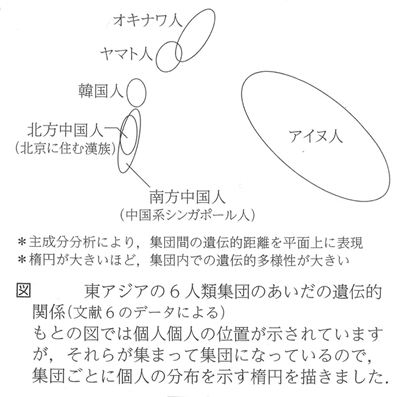 オキナワ人
ヤマト人
韓国人
北方中国人
(北京に住む漢族)
アイヌ人
南方中国人
(中国系シンガポール人)
＊主成分分析により，集団間の遺伝的距離を平面上に表現
＊楕円が大きいほど，集団内での遺伝的多様性が大きい
図 東アジアの6人類集団のあいだの遺伝的
関係(文献6のデータによる)
もとの図では個人個人の位置が示されています
が，それらが集まって集団になっているので，
集団ごとに個人の分布を示す楕円を描きました．